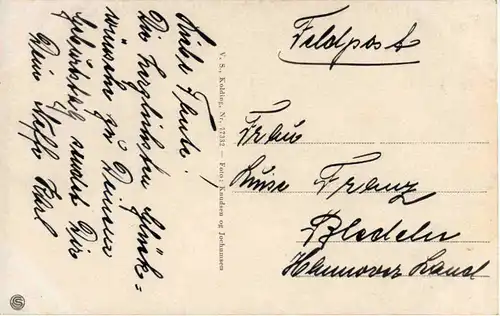 Liebe Tante!
Die herzlichsten Glück=
wünsche zu Deinem
Geburtstag sendet Dir
Dein Neffe Karl
V. S., Kolding, Nr. 27332 - Foto: Knudsen og Jochumsen
Feldpost
Frau
Luise Franz
Bledeln
Hannover Land